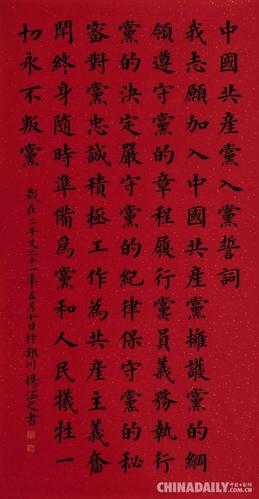 中國共産黨入黨誓詞
我志願加入中國共産黨擁護黨的綱
領遵守黨的章程履行黨員義務執行
黨的決定嚴守黨的紀律保守黨的秘
密對黨忠誠積極工作為共産主義奮
鬥終身隨時準備爲黨和人民犧牲一
切永不叛黨
歲在二千又二十一年五月十日於銀川楊書
CHINADAILY
.COM.CN